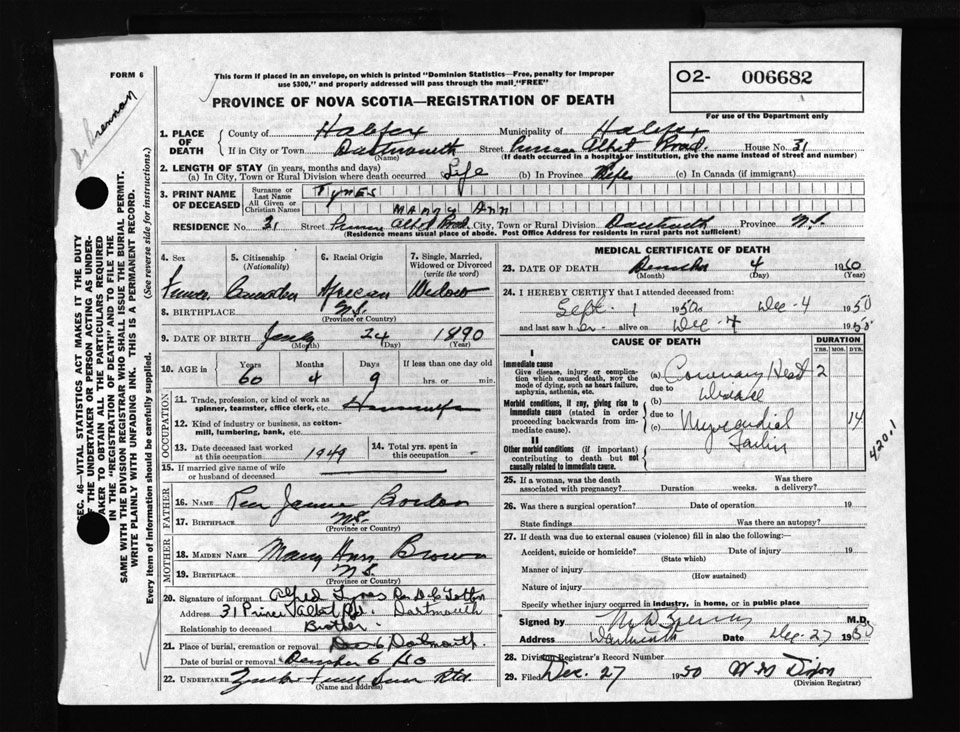 FORM 6
This form if placed in an envelope, on which is printed "Dominion Statistics—Free, penalty for improper
use $300," and properly addressed will pass through the mail "FREE"
O2- 006682
PROVINCE OF NOVA SCOTIA—REGISTRATION OF DEATH
For use of the Department only
Brennan
SEC. 46—VITAL STATISTICS ACT MAKES IT THE DUTY
OF THE UNDERTAKER OR PERSON ACTING AS UNDER-
TAKER TO OBTAIN ALL THE PARTICULARS REQUIRED
IN THE "REGISTRATION OF DEATH" AND TO FILE THE
SAME WITH THE DIVISION REGISTRAR WHO SHALL ISSUE THE BURIAL PERMIT.
WRITE PLAINLY WITH UNFADING INK. THIS IS A PERMANENT RECORD.
Every item of information should be carefully supplied. (See reverse side for instructions.)
1. PLACE OF DEATH
County of Halifax Municipality of Halifax
If in City or Town Dartmouth Street Prince Albert Road. House No. 31
(Name) (If death occurred in a hospital or institution, give the name instead of street and number)
2. LENGTH OF STAY (in years, months and days)
(a) In City, Town or Rural Division where death occurred Life (b) In Province Life (c) In Canada (if immigrant)
3. PRINT NAME OF DECEASED
Surname or Last Name TYNES
All Given or Christian Names MARY ANN
RESIDENCE No. 31 Street Prince Albert Road. City, Town or Rural Division Dartmouth Province N.S.
(Residence means usual place of abode. Post Office Address for residents in rural parts not sufficient)
4. Sex
5. Citizenship (Nationality)
6. Racial Origin
7. Single, Married, Widowed or Divorced (write the word)
Female Canadian African Widow
8. BIRTHPLACE N.S.
(Province or Country)
9. DATE OF BIRTH July 24 1890
(Month) (Day) (Year)
10. AGE in Years Months Days If less than one day old
60 4 9 hrs. or min.
OCCUPATION
11. Trade, profession, or kind of work as
spinner, teamster, office clerk, etc. Housewife
12. Kind of industry or business, as cotton-
mill, lumbering, bank, etc.
13. Date deceased last worked
at this occupation 1949
14. Total yrs. spent in
this occupation -
15. If married give name of wife
or husband of deceased
FATHER
16. NAME James Bordon
17. BIRTHPLACE N.S.
(Province or Country)
MOTHER
18. MAIDEN NAME Mary Ann Brown
19. BIRTHPLACE N.S.
(Province or Country)
20. Signature of informant Alfred
Address 31 Prince Albert Rd. Dartmouth
Relationship to deceased Brother
21. Place of burial, cremation or removal Dartmouth.
Date of burial or removal December 6 50
22. UNDERTAKER
(Name and address)
MEDICAL CERTIFICATE OF DEATH
23. DATE OF DEATH December 4 1950
(Month) (Day)
24. I HEREBY CERTIFY that I attended deceased from:
Sept. 1 1950 Dec - 4 1950
and last saw her alive on Dec - 4 1950
CAUSE OF DEATH
DURATION
YRS. MOS. DYS.
I
Immediate cause
Give disease, injury or compli-
cation which caused death, NOT the
mode of dying, such as heart failure,
asphyxia, asthenia, etc.
(a) Coronary Heart 2
due to
Morbid conditions, if any, giving rise to
immediate cause (stated in order
proceeding backwards from im-
mediate cause).
(b) Disease
due to
(c) Myocardial Failure 14
II
Other morbid conditions (if important)
contributing to death but not
causally related to immediate cause.
420.1
25. If a woman, was the death
associated with pregnancy? Duration weeks. Was there
a delivery?
26. Was there a surgical operation? Date of operation. 19
State findings Was there an autopsy?
27. If death was due to external causes (violence) fill in also the following:
Accident, suicide or homicide? Date of injury 19
(State which)
Manner of injury
(How sustained)
Nature of injury
Specify whether injury occurred in industry, in home, or in public place
Signed by M.D.
Address Dartmouth Date Dec. 27 1950
28. Division Registrar's Record Number
29. Filed Dec. 27 1950 W M Dixon
(Division Registrar)